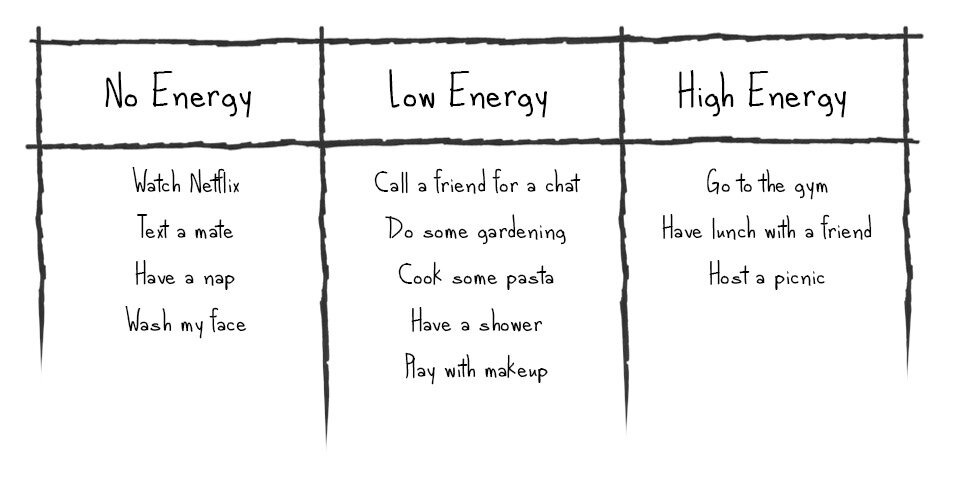 No Energy
Low Energy
High Energy
Watch Netflix
Call a friend for a chat
Go to the gym
Text a mate
Do some gardening
Have lunch with a friend
Have a nap
Cook some pasta
Host a picnic
Wash my face
Have a shower
Play with makeup